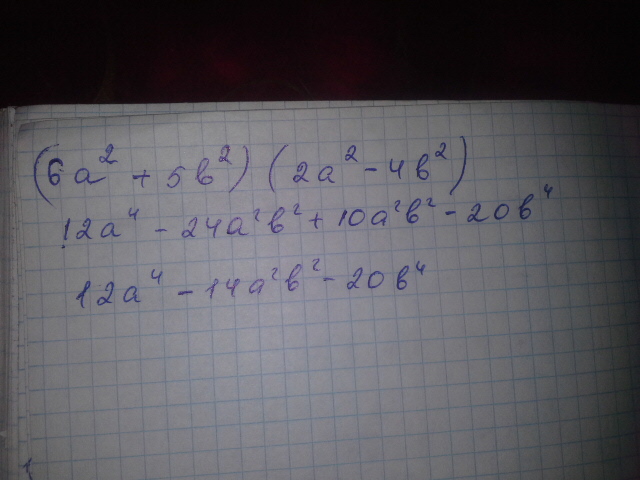 (6a² + 5b²) (2a² - 4b²)
12a⁴ - 24a²b² + 10a²b² - 20b⁴
12a⁴ - 14a²b² - 20b⁴